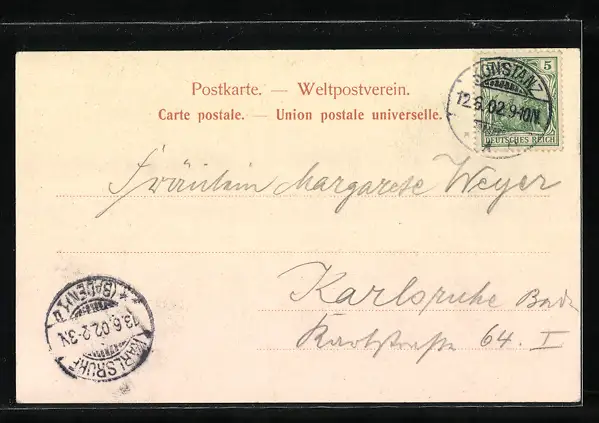 Postkarte. — Weltpostverein.
Carte postale. — Union postale universelle.
5
DEUTSCHES REICH
KONSTANZ
12.6.02.9-10N.
*
Fräulein Margarese Weyer
Karlsruhe Bad
64. I
KARLSRUHE
13.6.02.2-3N.
(BADEN)